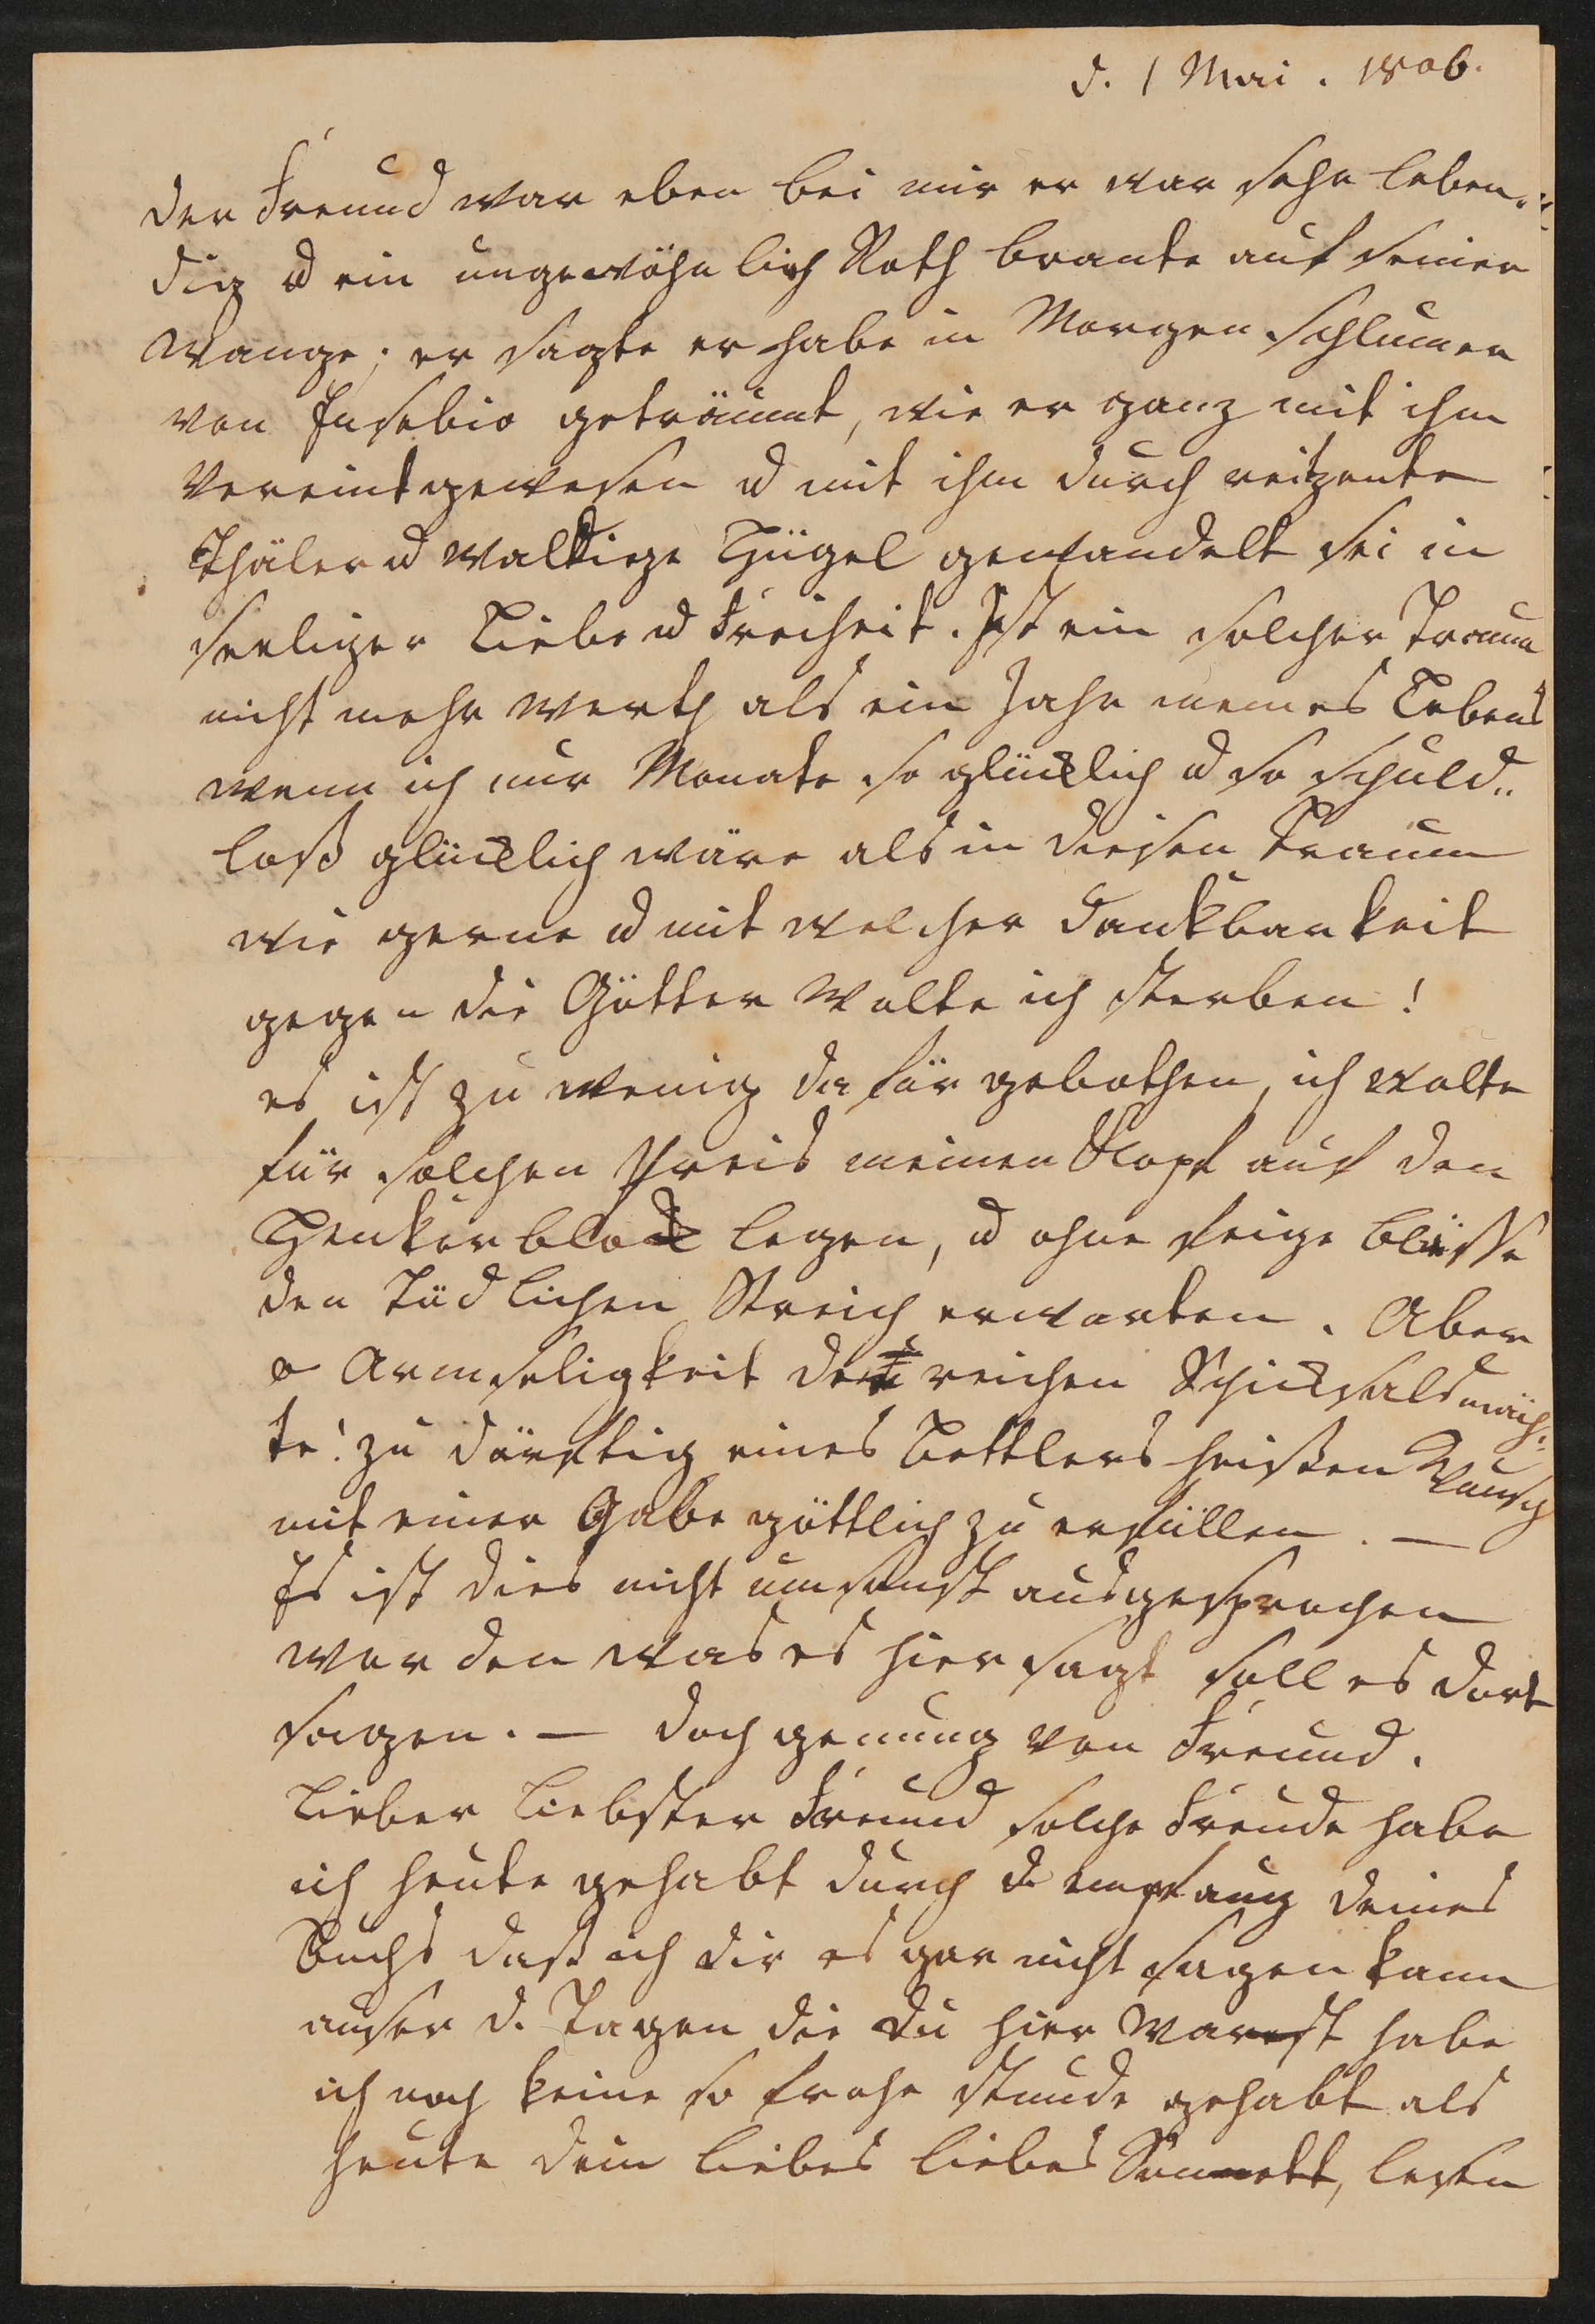 d. 1 Mai. 1806.
Der Freund war eben bei mir er war sehr leben¬
dig u ein ungewöhnlich Roth brante auf seiner
Wange; er sagte er habe in Morgen Schlumer
von Eusebio geträumt, wie er ganz mit ihm
vereint gewesen u mit ihm durch reitzente
Thäler u waldige Hügel gewandelt sei in
seeliger Liebe u Freiheit. Ist ein solcher Traum
nicht mehr werth als ein Jahr meines Lebens
wenn ich nur Monate so glücklich u so schuld„
loß glücklich wäre als in diesen Traum
wie gerne u mit welcher Dankbarkeit
gegen die Götter wolte ich sterben!
es ist zu wenig dafür gebothen, ich wolte
für solchen Preis meinen Kopf auf den
Henkerblock legen, u ohne feige Blässe
den tödlichen Streich erwarten. Aber
o Armseligkeit der reichen Schicksalsmäch¬
te! zu dürftig eines Bettlers heißen Wunsch
mit einer Gabe göttlich zu erfüllen. —
Es ist dies nicht umsonst ausgesprochen
worden was es hier sagt soll es dort
sagen. — doch genung von Freund.
Lieber Liebster Freund solche Freude habe
ich heute gehabt durch d. empfang deines
Buchs daß ich dir es gar nicht sagen kann
auser d. Tagen die du hier warest habe
ich noch keine so frohe stunde gehabt als
heute dein liebes liebes Sonnett, lesen